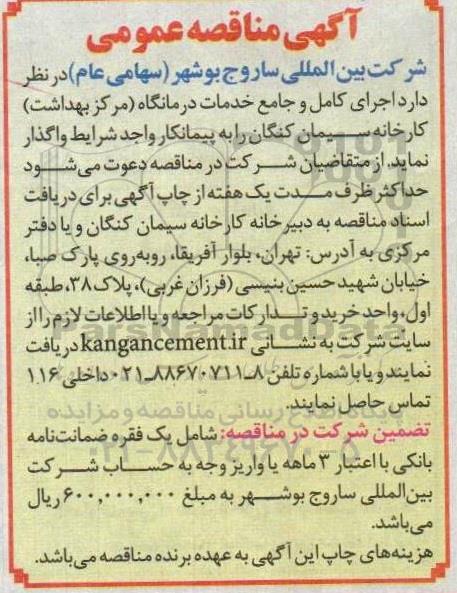 آگهی مناقصه عمومی
شرکت بین المللی ساروج بوشهر (سهامی عام) در نظر
دارد اجرای کامل و جامع خدمات درمانگاه (مرکز بهداشت)
کارخانه سیمان کنگان را به پیمانکار واجد شرایط واگذار
نماید. از متقاضیان شرکت در مناقصه دعوت می شود
حداکثر ظرف مدت یک هفته از چاپ آگهی برای دریافت
اسناد مناقصه به دبیرخانه کارخانه سیمان کنگان و یا دفتر
مرکزی به آدرس: تهران، بلوار آفریقا، روبه روی پارک صبا،
خیابان شهید حسین بنیسی (فرزان غربی)، پلاک ۳۸، طبقه
اول، واحد خرید و تدارکات مراجعه و یا اطلاعات لازم را از
سایت شرکت به نشانی kangancement.ir دریافت
نمایند و یا با شماره تلفن ۸ـ۸۸۶۷۰۷۱۱ـ۰۲۱ داخلی ۱۱۶
تماس حاصل نمایند.
تضمین شرکت در مناقصه: شامل یک فقره ضمانت نامه
بانکی با اعتبار ۳ ماهه یا واریز وجه به حساب شرکت
بین المللی ساروج بوشهر به مبلغ ۶۰۰,۰۰۰,۰۰۰ ریال
می باشد.
هزینه های چاپ این آگهی به عهده برنده مناقصه می باشد.
ParsNamadData
پایگاه اطلاع رسانی مناقصه و مزایده